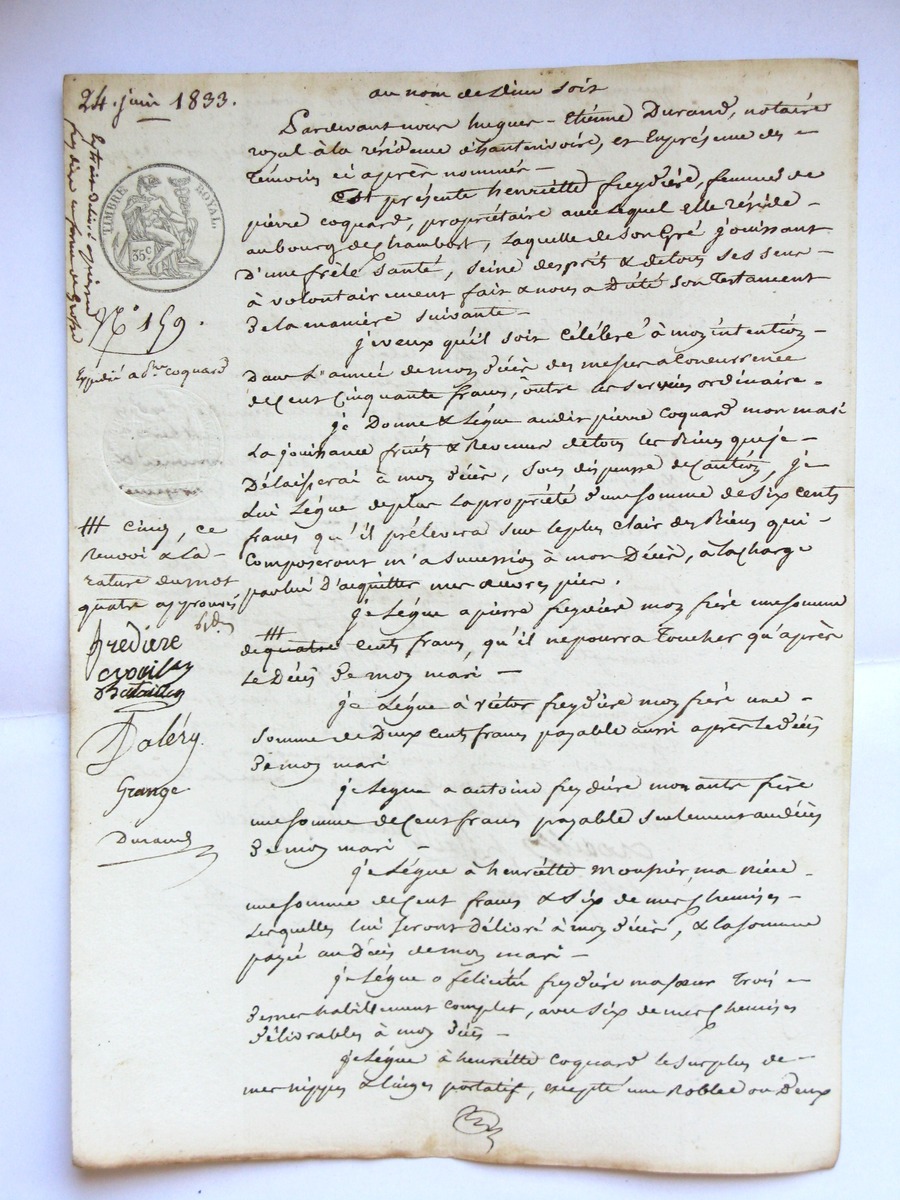 24. juin 1833.
au nom de Dieu soit
Pardevant nous hugues-Etiénne Durand, notaire
royal à la résidence d'hauterivoire, et En présence des
témoins ci après nommés
Est présente henriette freydiére, femme de
pierre coquard, propriétaire avec lequel elle réside
au bourg de Chambost, Laquelle de son Gré jouissant
D'une frêle santé, seine desprit & de tous ses sens
à volontairement fait & nous a Dicté son Testament
De la maniére suivante
j'veux qu'il soit célébré à mon intention
Dans L'année de mon Décès des messes a Concurrence
de Cent Cinquante francs, outre les services ordinaire.
je Donne & Légue audit pierre Coquard mon mari
La jouissance fruits & Revenus de tous les Biens que je
Délaisserai à mon Décès, sous dispense de Caution, je
Lui Légue de plus La propriété d'une somme de six cents
francs qu'il prélevera sur le plus clair des Biens qui
Composeront m'a sucession à mon Décès, à la charge
par lui d'acquitter mes œuvres pies.
je Légue a pierre freydiére mon frére une somme
de quatre cent francs, qu'il ne pourra Toucher qu'après
Le Décès De mon mari
je Légue à victor freydiére mon frére une
somme de Deux cent francs payable aussi après le Décès
De mon mari
je Legue a antoine freydiére mon autre frére
une somme de Cent francs payable seulement au décès
De mon mari
je Légue à henriétte mousnier, ma niéce
une somme de Cent francs & six de mes Chemises
Lesquelles lui seront Délivré à mon Décès, & la somme
payé au Décès de mon mari
je Légue a félicité freydiére ma sœur Trois
De mes habillement complet, avec six de mes Chemises
Délivrables à mon Décès
je Légue à henriétte Coquard le surplus de
mes nippes & linges portatif, excepté une Robbe ou Deux
Extrait Délivré a pierre
freydiére en forme de Grosse
TIMBRE ROYAL
35 c
N° 159.
Expédié a coquard
cinq, ce
renvoi & La
rature du mot
quatre approuvés
fredière
Daléry
Grange
Durand